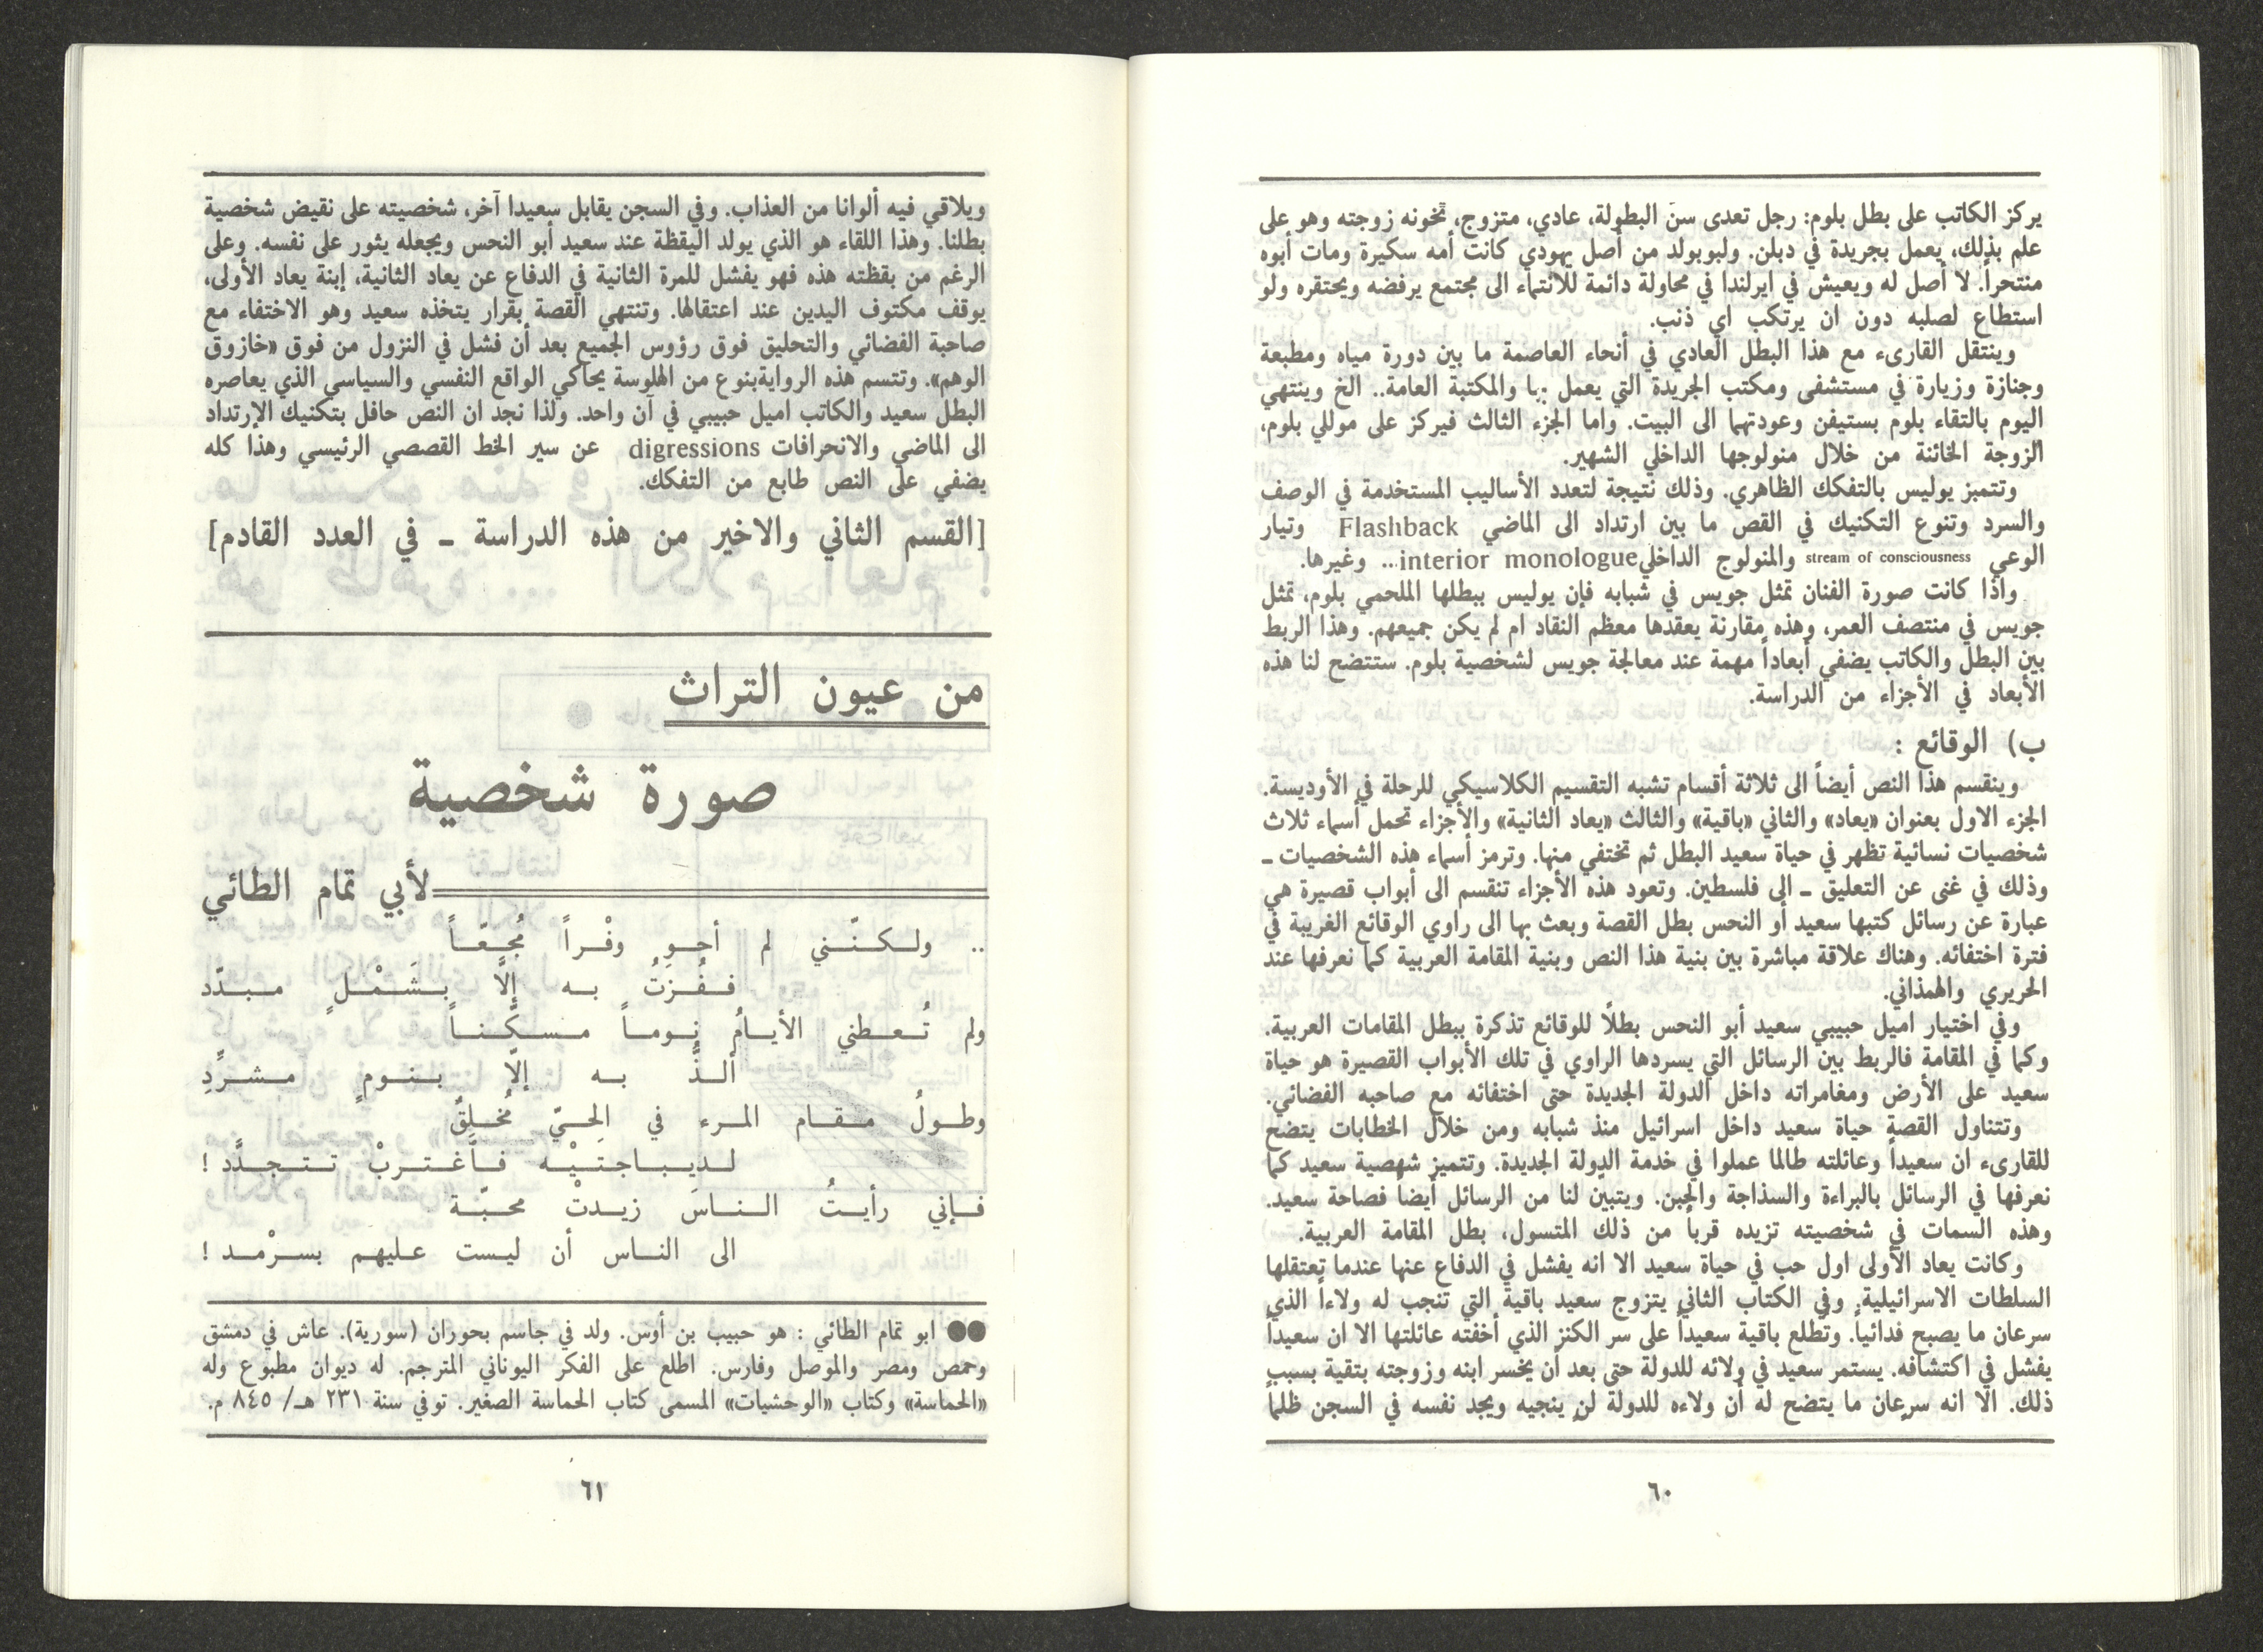 يركز الكاتب على بطل بلوم: رجل تعدى سنّ البطولة، عادي، متزوج، تخونه زوجته وهو على
علم بذلك، يعمل بجريدة في دبلن. ولبوبولد من أصل يهودي كانت أمه سكيرة ومات أبوه
منتحراً. لا أصل له ويعيش في ايرلندا في محاولة دائمة للانتماء الى مجتمع يرفضه ويحتقره ولو
استطاع لصلبه دون ان يرتكب اي ذنب.
وينتقل القارىء مع هذا البطل العادي في أنحاء العاصمة ما بين دورة مياه ومطبعة
وجنازة وزيارة في مستشفى ومكتب الجريدة التي يعمل بها والمكتبة العامة.. الخ وينتهي
اليوم بالتقاء بلوم بستيفن وعودتهما الى البيت. واما الجزء الثالث فيركز على موللي بلوم،
الزوجة الخائنة من خلال منولوجها الداخلي الشهير.
وتتميز يوليس بالتفكك الظاهري. وذلك نتيجة لتعدد الأساليب المستخدمة في الوصف
والسرد وتنوع التكنيك في القص ما بين ارتداد الى الماضي Flashback وتيار
الوعي stream of consciousness والمنولوج الداخلي interior monologue... وغيرها.
واذا كانت صورة الفنان تمثل جويس في شبابه فإن يوليس ببطلها الملحمي بلوم، تمثل
جويس في منتصف العمر، وهذه مقارنة يعقدها معظم النقاد ام لم يكن جميعهم. وهذا الربط
بين البطل والكاتب يضفي أبعاداً مهمة عند معالجة جويس لشخصية بلوم. ستتضح لنا هذه
الأبعاد في الأجزاء من الدراسة.
ب) الوقائع :
وينقسم هذا النص أيضاً الى ثلاثة أقسام تشبه التقسيم الكلاسيكي للرحلة في الأوديسة.
الجزء الاول بعنوان «يعاد» والثاني «باقية» والثالث «يعاد الثانية» والأجزاء تحمل أسماء ثلاث
شخصيات نسائية تظهر في حياة سعيد البطل ثم تختفي منها. وترمز أسماء هذه الشخصيات ـ
وذلك في غنى عن التعليق ـ إلى فلسطين. وتعود هذه الأجزاء تنقسم الى أبواب قصيرة هي
عبارة عن رسائل كتبها سعيد أو النحس بطل القصة وبعث بها الى راوي الوقائع الغريبة في
فترة اختفائه. وهناك علاقة مباشرة بين بنية هذا النص وبنية المقامة العربية كما نعرفها عند
الحريري والهمذاني.
وفي اختيار اميل حبيبي سعيد أبو النحس بطلاً للوقائع تذكرة ببطل المقامات العربية.
وكما في المقامة فالربط بين الرسائل التي يسردها الراوي في تلك الأبواب القصيرة هو حياة
سعيد على الأرض ومغامراته داخل الدولة الجديدة حتى اختفائه مع صاحبه الفضائي.
وتتناول القصة حياة سعيد داخل اسرائيل منذ شبابه ومن خلال الخطابات يتضح
للقارىء ان سعيداً وعائلته طالما عملوا في خدمة الدولة الجديدة. وتتميز شهصية سعيد كما
نعرفها في الرسائل بالبراءة والسذاجة والجبن. ويتبين لنا من الرسائل أيضاً فصاحة سعيد.
وهذه السمات في شخصيته تزيده قرباً من ذلك المتسول، بطل المقامة العربية.
وكانت يعاد الأولى اول حب في حياة سعيد الا انه يفشل في الدفاع عنها عندما تعتقلها
السلطات الاسرائيلية. وفي الكتاب الثاني يتزوج سعيد باقية التي تنجب له ولاءاً الذي
سرعان ما يصبح فدائياً. وتطلع باقية سعيداً على سر الكنز الذي أخفته عائلتها الا ان سعيداً
يفشل في اكتشافه. يستمر سعيد في ولائه للدولة حتى بعد أن يخسر ابنه وزوجته بتقية بسبب
ذلك. الا انه سرعان ما يتضح له أن ولاءه للدولة لن ينجيه ويجد نفسه في السجن ظلماً
٦٠
ويلاقي فيه ألوانا من العذاب. وفي السجن يقابل سعيدا آخر، شخصيته على نقيض شخصية
بطلنا. وهذا اللقاء هو الذي يولد اليقظة عند سعيد أبو النحس ويجعله يثور على نفسه. وعلى
الرغم من يقظته هذه فهو يفشل للمرة الثانية في الدفاع عن يعاد الثانية، إبنة يعاد الأولى،
يوقف مكتوف اليدين عند اعتقالها. وتنتهي القصة بقرار يتخذه سعيد وهو الاختفاء مع
صاحبة الفضائي والتحليق فوق رؤوس الجميع بعد أن فشل في النزول من فوق «خازوق
الوهم». وتتسم هذه الروايةبنوع من الهلوسة يحاكي الواقع النفسي والسياسي الذي يعاصره
البطل سعيد والكاتب اميل حبيبي في آن واحد. ولذا نجد ان النص حافل بتكنيك الإرتداد
الى الماضي والانحرافات digressions عن سير الخط القصصي الرئيسي وهذا كله
يضفي على النص طابع من التفكك.
[القسم الثاني والاخير من هذه الدراسة ـ في العدد القادم]
من عيون التراث
صورة شخصية
لأبي تمام الطائي
.. ولـكـنّـني لم أحـوِ وفْـراً مُجـمّـعـاً
فـفُـزتُ بـه إلّا بـشَـمْـلٍ مـبـدّد
ولم تُـعـطني الأيـامُ نـومـاً مـسـكّـنـاً
ألـذُّ بـه إلّا بـنـومٍ مـشـرَّدِ
وطـولُ مـقـام المـرء في الحـيّ مُخـلِقٌ
لـديـبـاجـتَـيْـه فـاغـتـربْ تـتـجـدَّد !
فـإني رأيـتُ الـنـاسَ زيـدتْ محـبّـة
الى النـاس أن ليـست عـليهـم بسـرْمـد !
●● ابو تمام الطائي : هو حبيب بن أوس. ولد في جاسم بحوران (سورية). عاش في دمشق
وحمص ومصر والموصل وفارس. اطلع على الفكر اليوناني المترجم. له ديوان مطبوع وله
«الحماسة» وكتاب «الوحشيات» المسمى كتاب الحماسة الصغير. توفي سنة ٢٣١ هـ/ ٨٤٥ م.
٦١